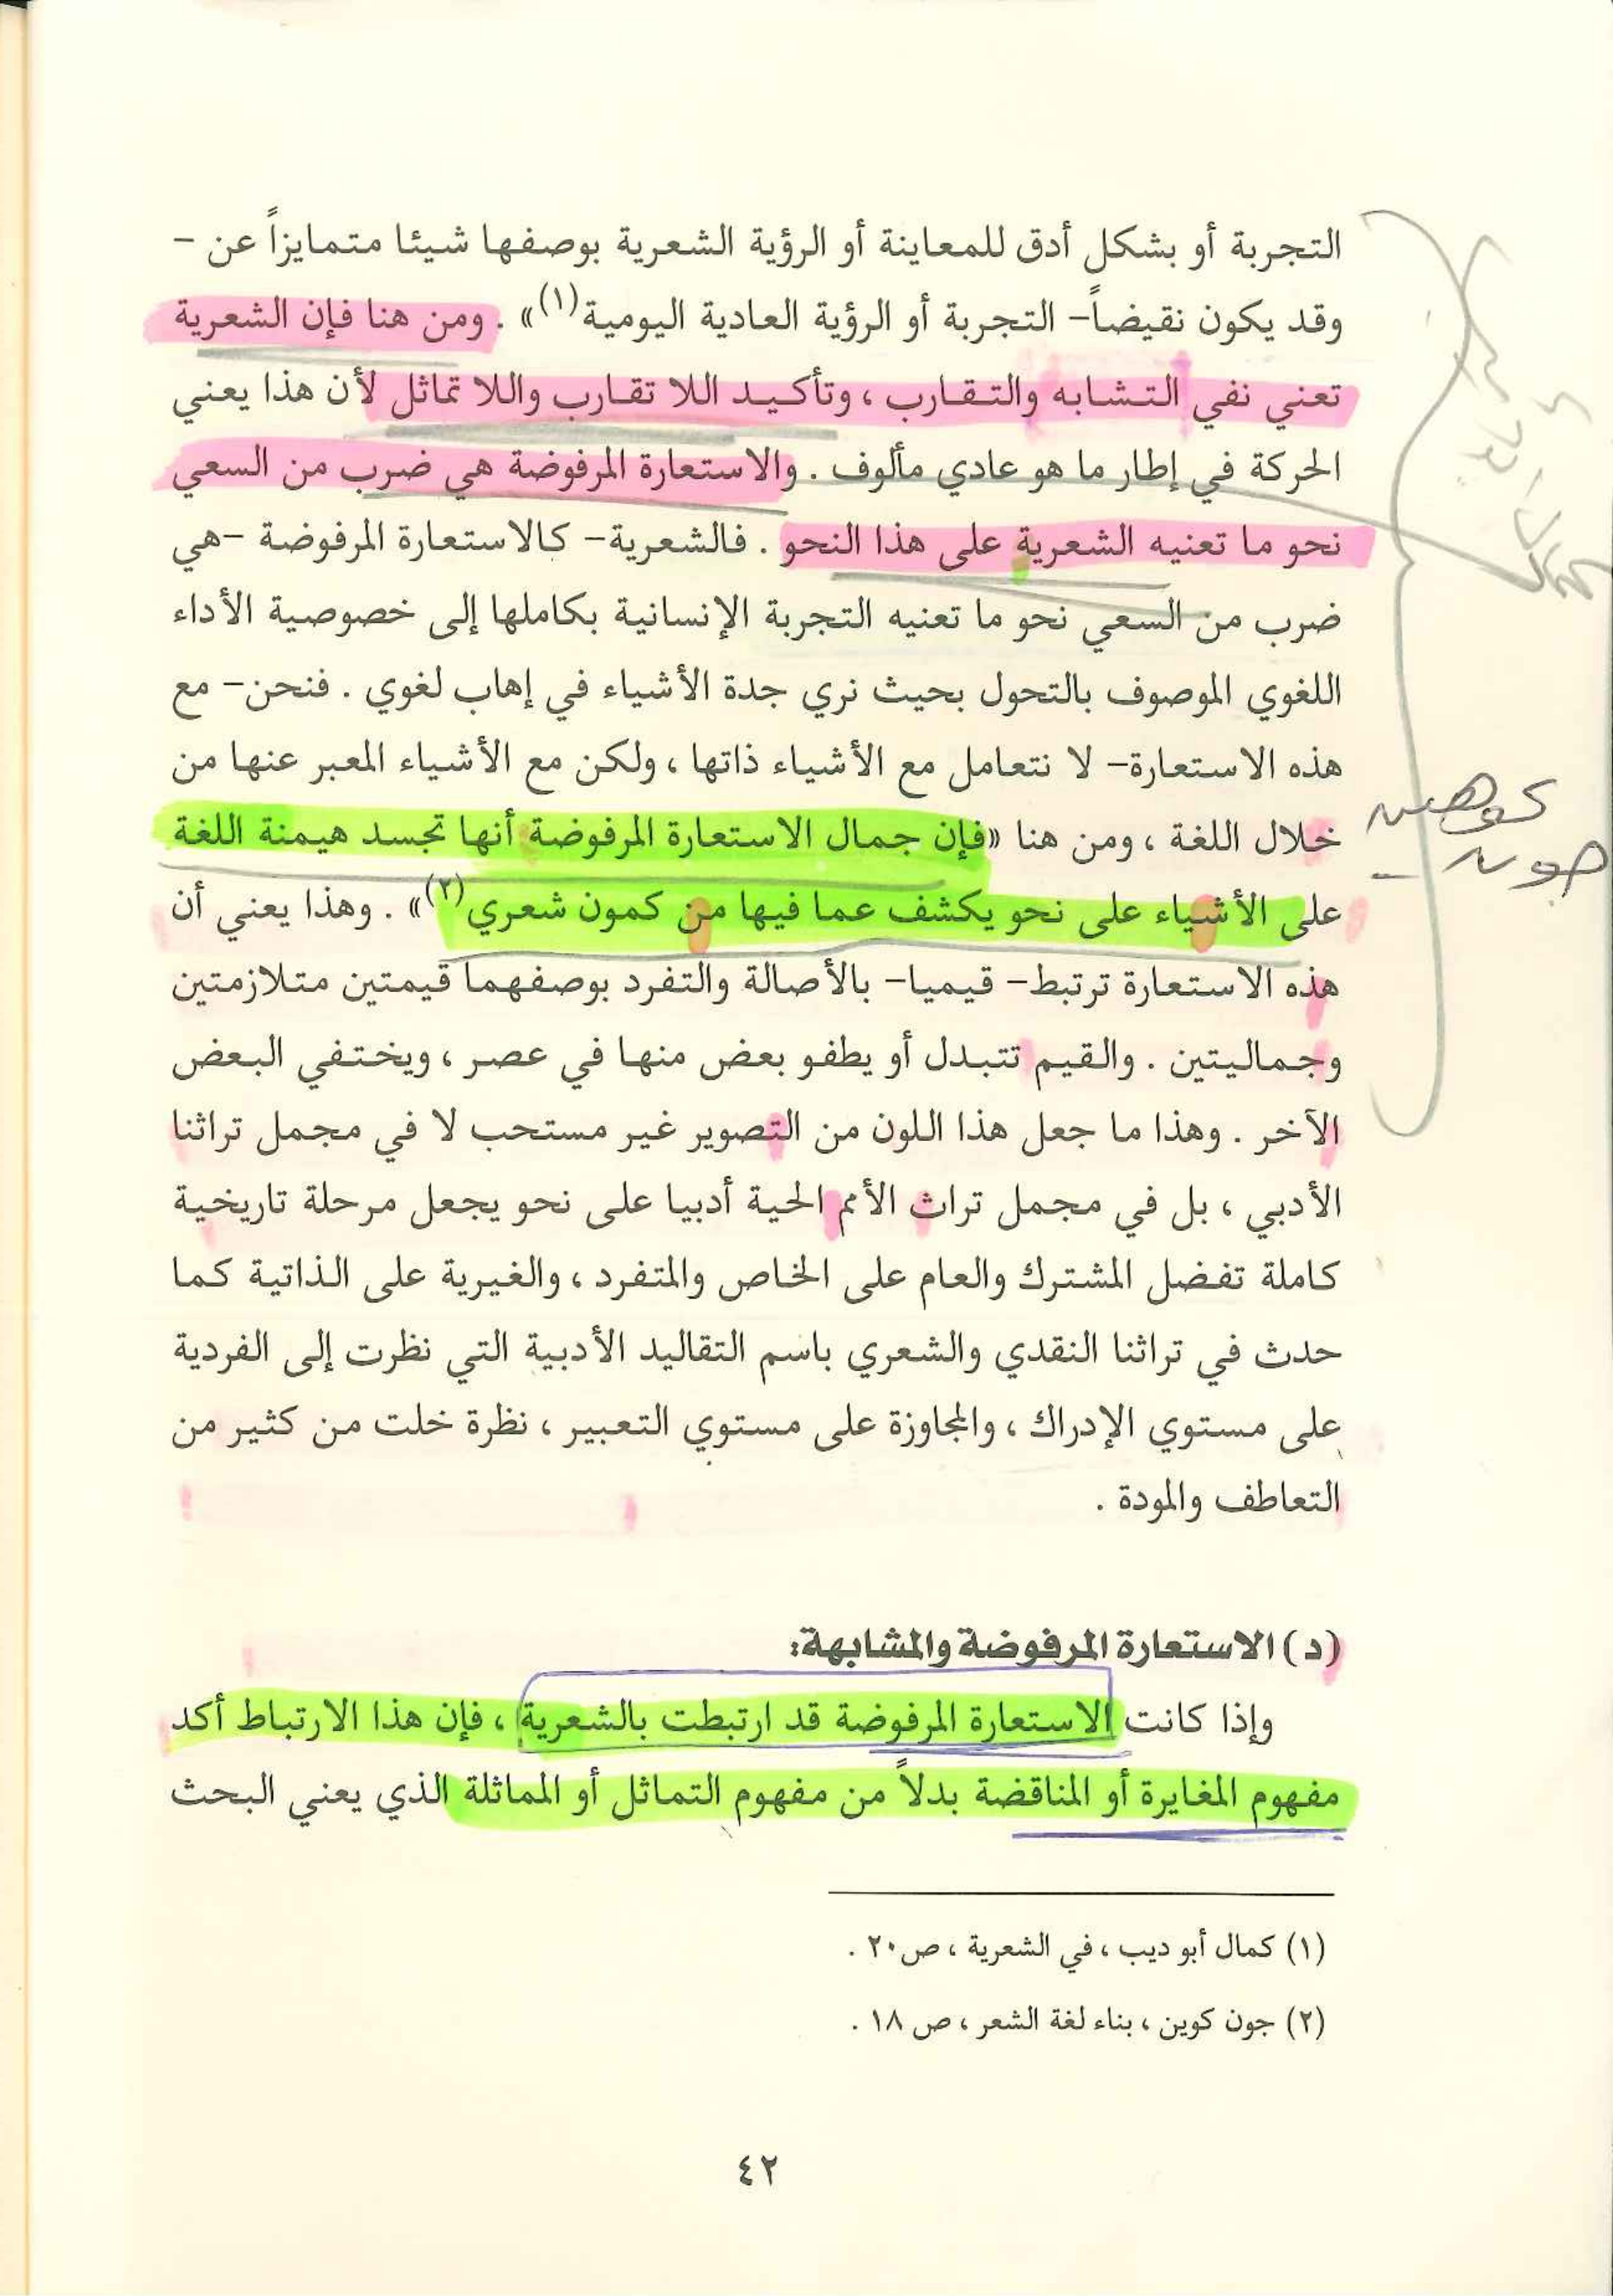 التجربة أو بشكل أدق للمعاينة أو الرؤية الشعرية بوصفها شيئا متمايزاً عن -
وقد يكون نقيضاً- التجربة أو الرؤية العادية اليومية(١)» . ومن هنا فإن الشعرية
تعني نفي التشابه والتقارب ، وتأكيد اللا تقارب واللا تماثل لأن هذا يعني
الحركة في إطار ما هو عادي مألوف . والاستعارة المرفوضة هي ضرب من السعي
نحو ما تعنيه الشعرية على هذا النحو . فالشعرية- كالاستعارة المرفوضة -هي
ضرب من السعي نحو ما تعنيه التجربة الإنسانية بكاملها إلى خصوصية الأداء
اللغوي الموصوف بالتحول بحيث نري جدة الأشياء في إهاب لغوي . فنحن- مع
هذه الاستعارة- لا نتعامل مع الأشياء ذاتها ، ولكن مع الأشياء المعبر عنها من
خلال اللغة ، ومن هنا «فإن جمال الاستعارة المرفوضة أنها تجسد هيمنة اللغة
على الأشياء على نحو يكشف عما فيها من كمون شعري(٢)» . وهذا يعني أن
هذه الاستعارة ترتبط- قيميا- بالأصالة والتفرد بوصفهما قيمتين متلازمتين
وجماليتين . والقيم تتبدل أو يطفو بعض منها في عصر ، ويختفي البعض
الآخر . وهذا ما جعل هذا اللون من التصوير غير مستحب لا في مجمل تراثنا
الأدبي ، بل في مجمل تراث الأمم الحية أدبيا على نحو يجعل مرحلة تاريخية
كاملة تفضل المشترك والعام على الخاص والمتفرد ، والغيرية على الذاتية كما
حدث في تراثنا النقدي والشعري باسم التقاليد الأدبية التي نظرت إلى الفردية
على مستوي الإدراك ، والمجاوزة على مستوي التعبير ، نظرة خلت من كثير من
التعاطف والمودة .
كوهين
جون
(د) الاستعارة المرفوضة والمشابهة:
وإذا كانت الاستعارة المرفوضة قد ارتبطت بالشعرية ، فإن هذا الارتباط أكد
مفهوم المغايرة أو المناقضة بدلاً من مفهوم التماثل أو المماثلة الذي يعني البحث
(١) كمال أبو ديب ، في الشعرية ، ص٢٠ .
(٢) جون كوين ، بناء لغة الشعر ، ص ١٨ .
٤٢